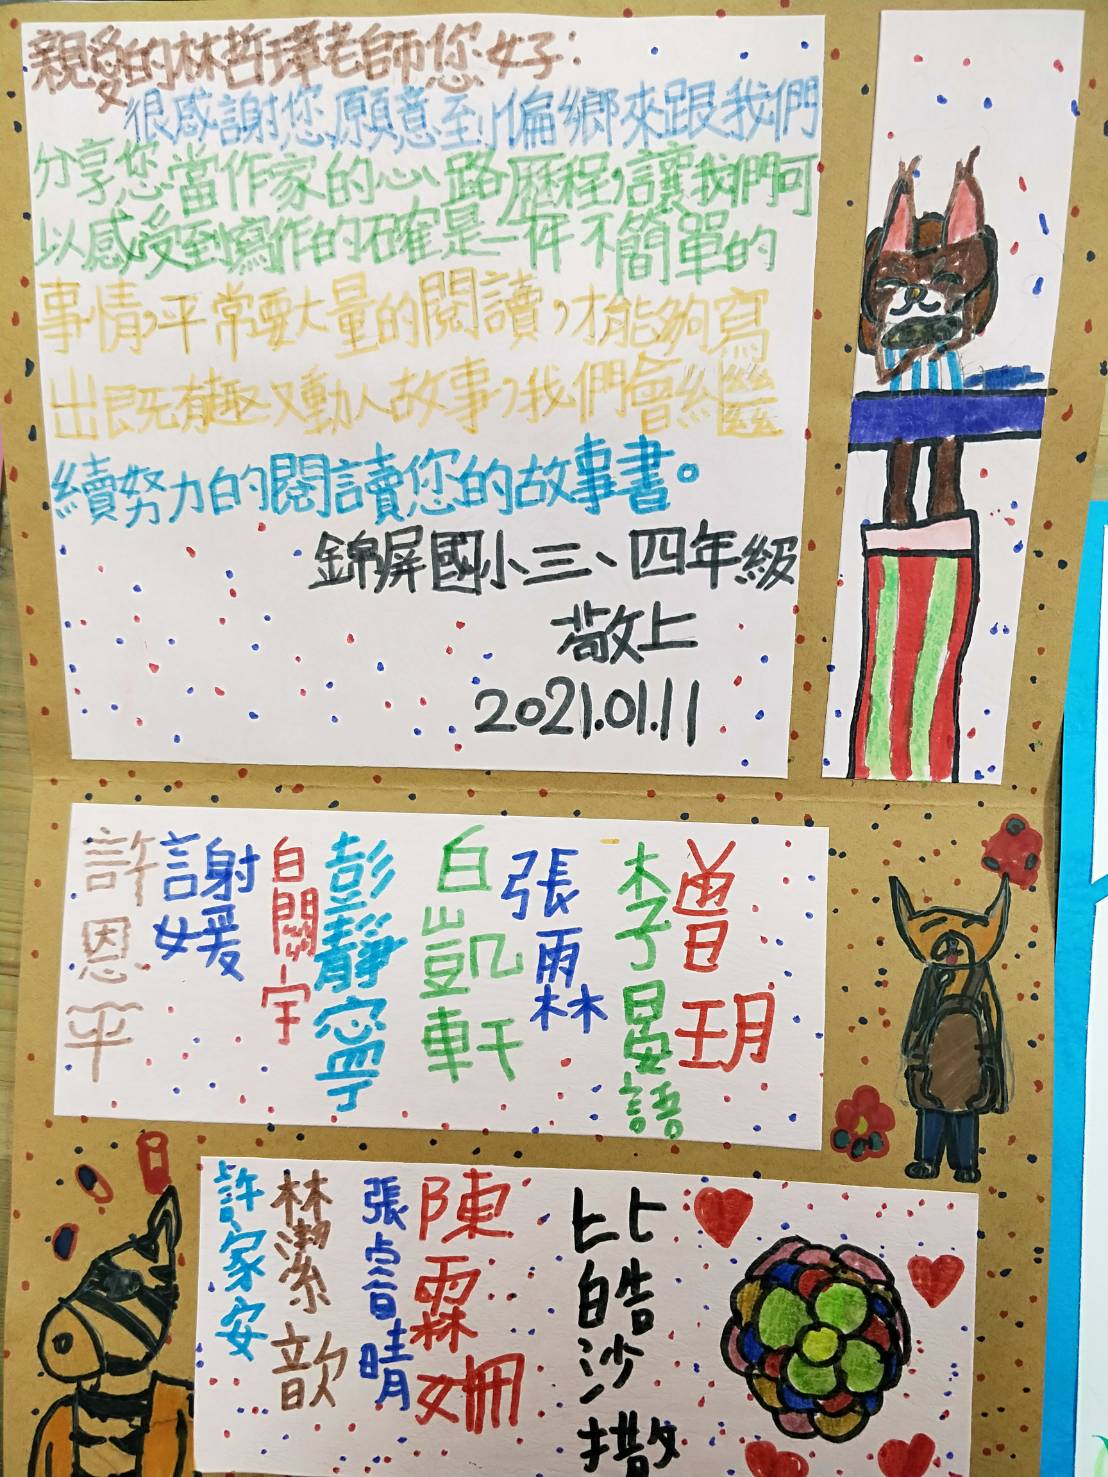 親愛的林哲璋老師您好：
很感謝您願意到偏鄉來跟我們
分享您當作家的心路歷程，讓我們可
以感受到寫作的確是一件不簡單的
事情，平常要大量的閱讀，才能夠寫
出既有趣又動人故事，我們會繼
續努力的閱讀您的故事書。
錦屏國小三、四年級
敬上
2021.01.11
曾玥
李晏語
張雨霖
白凱軒
彭靜寧
白閎宇
謝媛
許恩平
比皓沙撒
陳霖姍
張睿晴
林潔歆
許家安